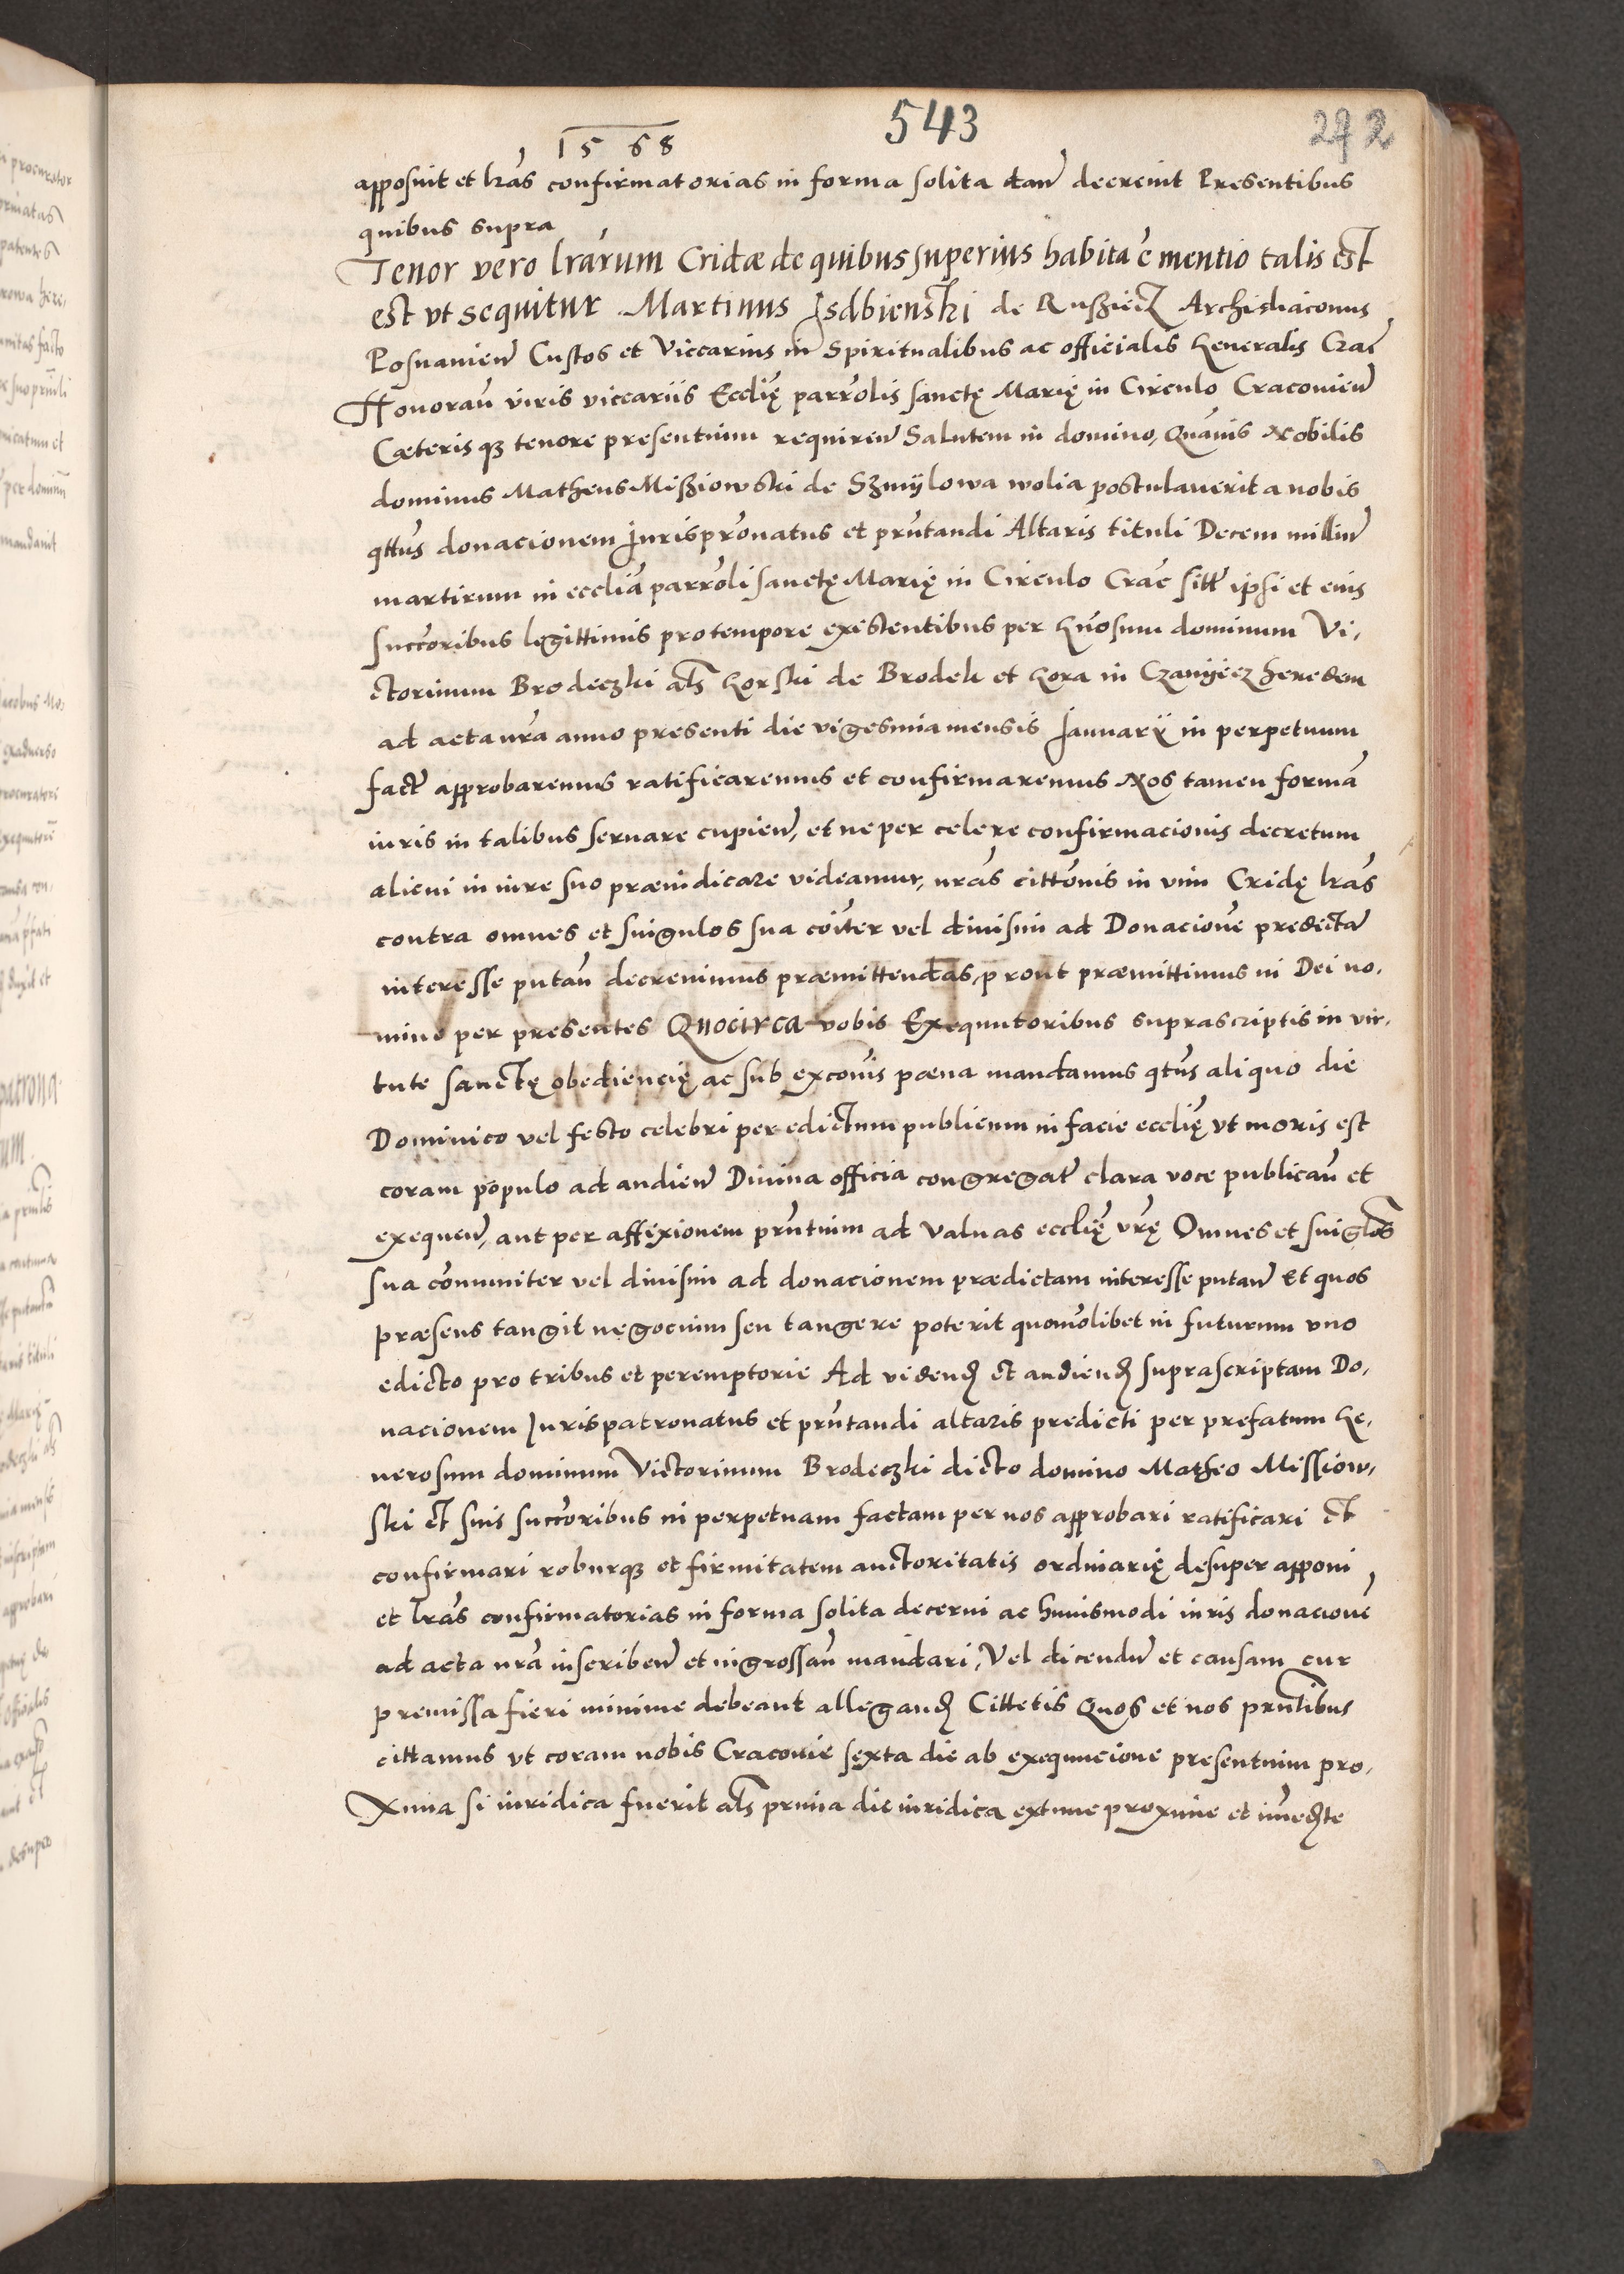 543
272
1568
apposuit et lras confirmatorias in forma solita dan decrevit Presentibus
quibus supra
Tenor vero lrarum Cridæ de quibus superius habita e mentio talis est
est vt sequitur Martinus Isdbienski de Rußiecz Archidiaconus
Posnanien Custos et Viccarius in Spiritualibus ac officialis Generalis Crac
Honoran viris viccariis Ecclię parrolis sanctę Marię in Circulo Cracovien
Cæterisqz tenore presentium requiren Salutem in domino, Quamis Nobilis
dominus Matheus Mißiowski de Szmijlowa wolia postulaverit a nobis
qttus donacionem Jurisprонatus et prntandi Altaris tituli Decem milliu
martirum in ecclia parroli sanctę Marię in Circulo Crac sitt ipsi et eius
succoribus legittimis pro tempore existentibus per Gnosum dominum Vi,
ctorinum Brodeczki als Gorski de Brodek et Gora in Czanijecz heredem
ad acta nra anno presenti die vigesima mensis Januarij in perpetuum
fact approbaremus ratificaremus et confirmaremus Nos tamen forma
iuris in talibus servare cupien, et ne per celere confirmacionis decretum
alicui in iure suo præiudicare videamur, nras cittonis in vim Cridę lras
contra omnes et singulos sua coiter vel divisim ad Donacione predicta
interesse putan decrevimus præmittendas, prout præmittimus in Dei no,
mine per presentes Quocirca vobis Exequutoribus suprascriptis in vir,
tute sanctę obediencię ac sub excoıs pæna mandamus qtus aliquo die
Dominico vel festo celebri per edictum publicum in facie ecclię vt moris est
coram populo ad audien Divina officia congregat clara voce publican et
exequen, aut per affixionem prntium ad Valvas ecclię vrę Omnes et singlos
sua comuniter vel divisim ad donacionem prædictam interesse putan Et quos
præsens tangit negocium seu tangere poterit quomolibet in futurum vno
edicto pro tribus et peremptorie Ad videnđ et audienđ suprascriptam Do,
nacionem Jurispatronatus et prntandi altaris predicti per prefatum Ge,
nerosum dominum Victorinum Brodeczki dicto domino Matheo Missiow,
ski et suis succoribus in perpetuam factam per nos approbari ratificari et
confirmari roburqz et firmitatem auctoritatis ordinarię desuper apponi
et lras confirmatorias in forma solita decerni ac huiusmodi iuris donacione
ad acta nra inscriben et ingrossan mandari, Vel dicendu et causam cur
premissa fieri minime debeant alleganđ Cittetis Quos et nos prntibus
cittamus vt coram nobis Cracovie sexta die ab exequucione presentium pro,
xima si iuridica fuerit als prima die iuridica extunc proxime et imeđte